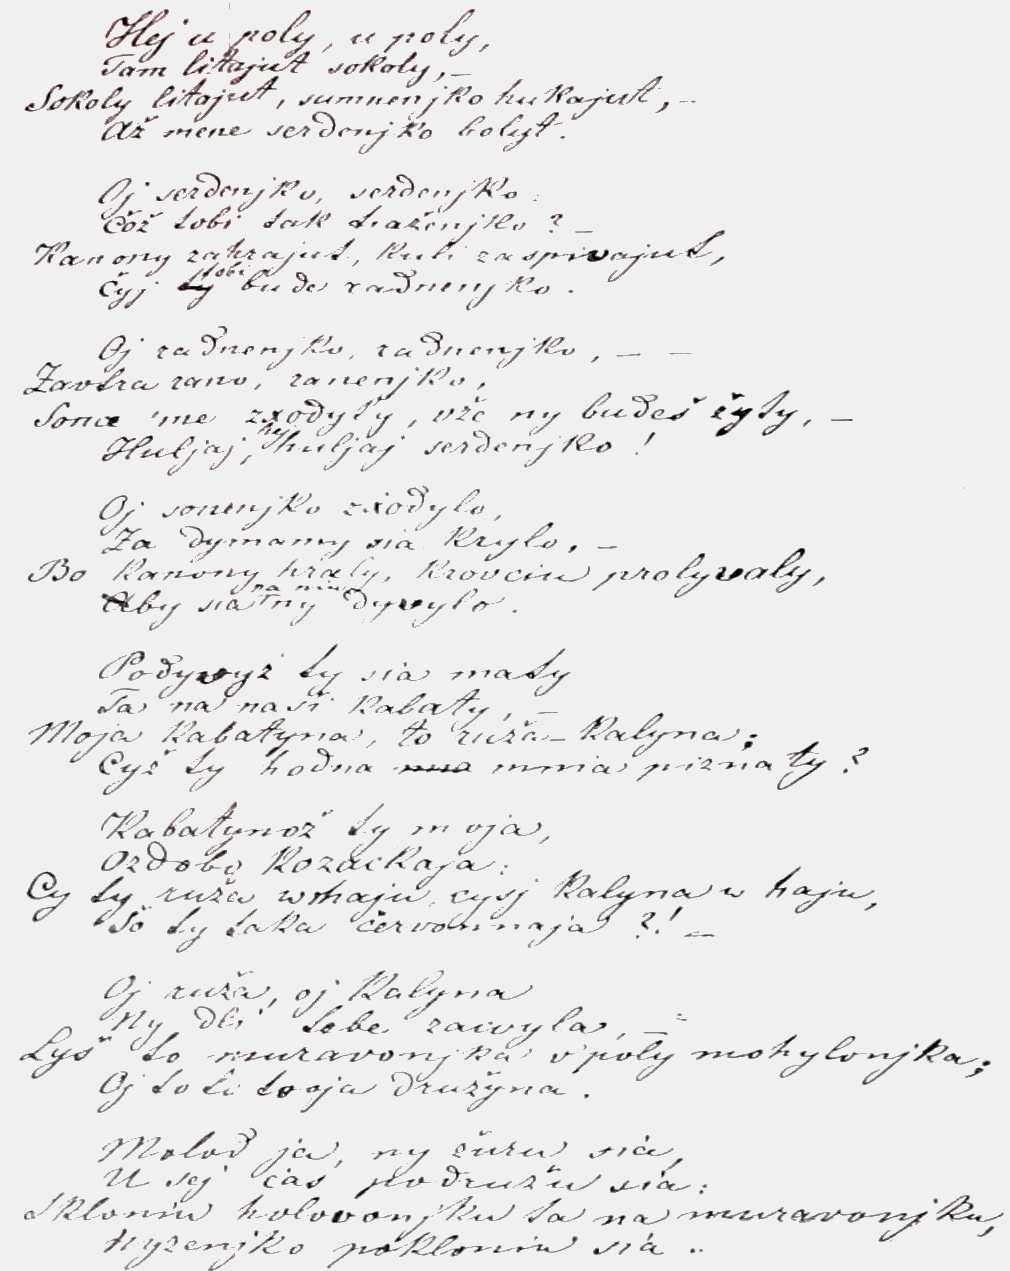 Hej u poly, u poly,
Tam litajut sokoly, –
Sokoly litajut, sumnenjko hukajut, –
Až mene serdenjko bolyt.
Oj serdenjko, serdenjko:
Čož tobi tak tiaženjko? –
Kanony zahrajut, kuli zaspivajut,
Čyj tobi bude radnenjko.
Oj radnenjko, radnenjko, – –
Zavtra rano, ranenjko,
Sonce 'me zxodyty, vže ny budeš žyty, –
Huljaj, hej huljaj serdenjko!
Oj sonenjko zxodylo,
Za dymamy sia krylo, –
Bo kanony hraly, krovciu prolyvaly,
Aby sia na niu ny dyvylo.
Podyvyž ty sia maty
Ta na naši kabaty, –
Moja kabatyna, to ruža – kalyna;
Cyž ty hodna mnia piznaty?
Kabatynož ty moja,
Ozdobo kozackaja:
Cy ty ruža w maju, cysj kalyna w haju,
Šo ty taka červonnaja?! –
Oj ruža, oj kalyna
Ny dli tebe zacvyla, –
Lyš to muravonjka v poly mohylonjka;
Oj to ti tvoja družyna.
Molod ja, ny žuru sia,
U sej čas podružu sia:
Skloniu holovonjku ta na muravonjku,
Nyzenjko pokloniu sia..